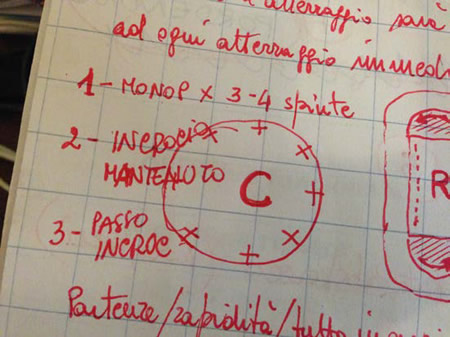 atterraggio sarà
ad ogni atterraggio immed
1 - MONOP x 3-4 spinte
2 - INCROCIO
MANTENUTO
C
R
3 - PASSO
INCROC
Partenze/rapidità/tutto in